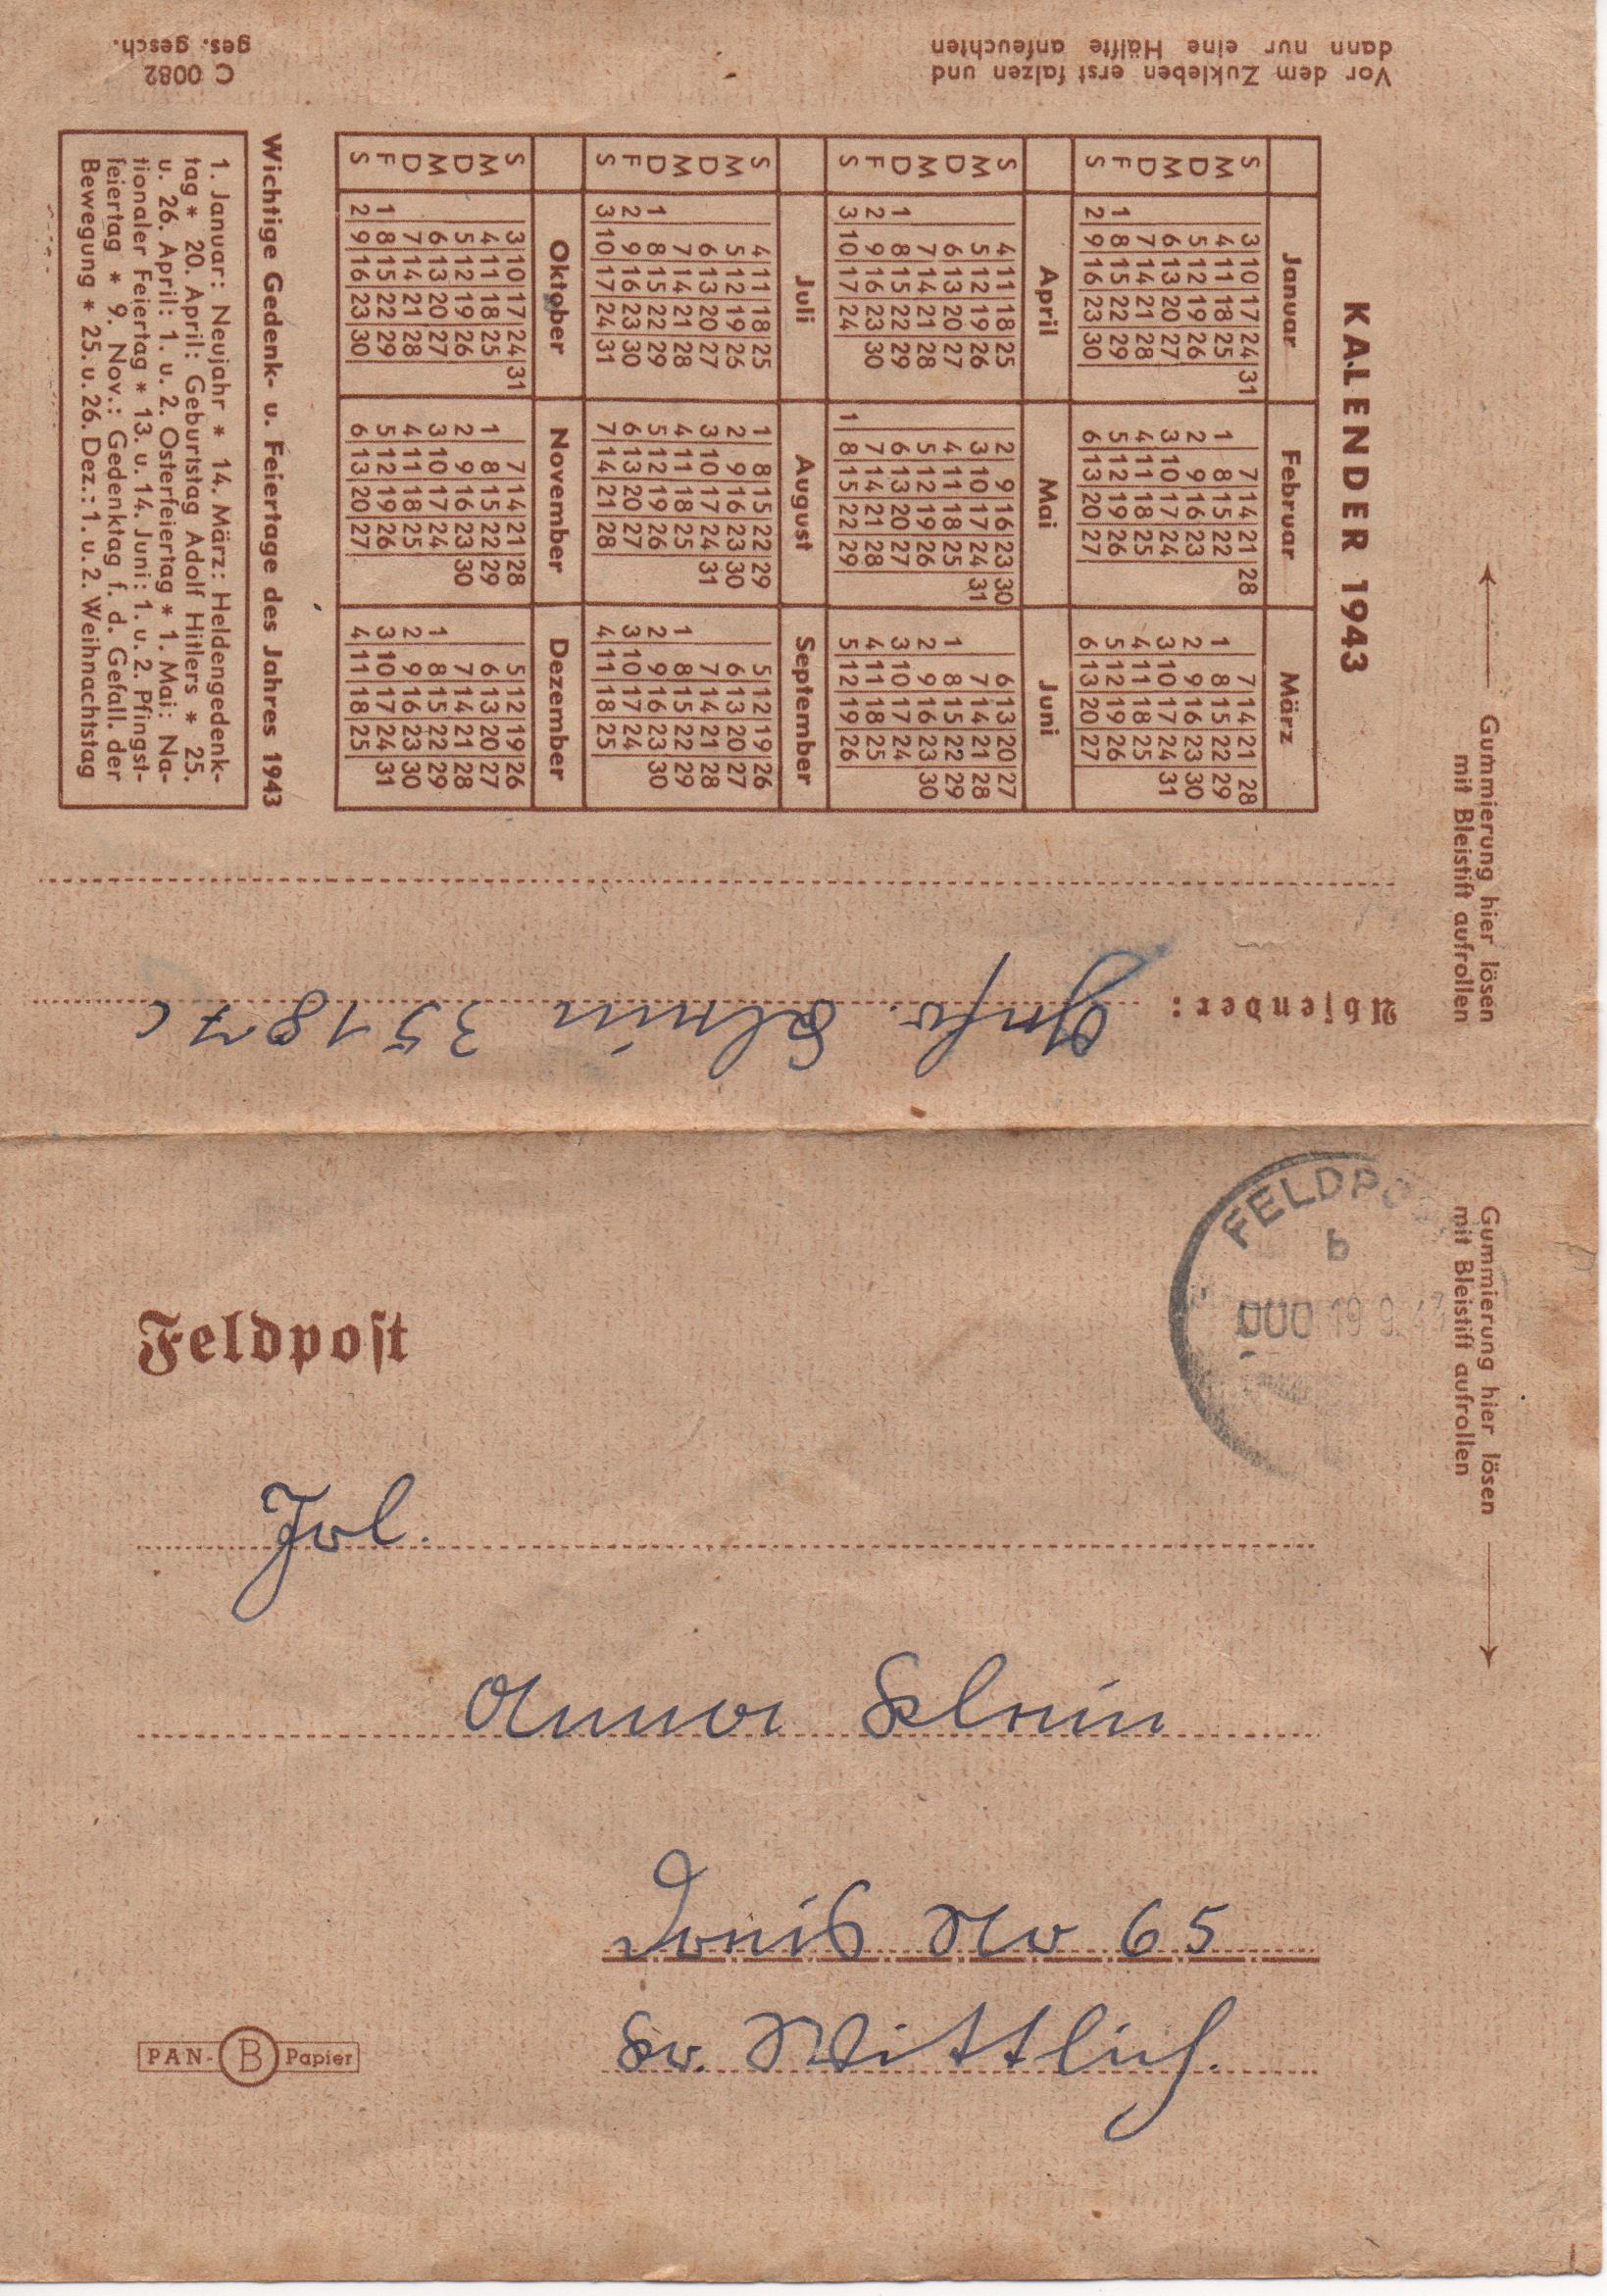 Vor dem Zukleben erst falzen und
dann nur eine Hälfte anfeuchten
C 0082
ges. gesch.
KALENDER 1943
Januar Februar März
S 3 10 17 24 31 7 14 21 28 7 14 21 28
M 4 11 18 25 1 8 15 22 1 8 15 22 29
D 5 12 19 26 2 9 16 23 2 9 16 23 30
M 6 13 20 27 3 10 17 24 3 10 17 24 31
D 7 14 21 28 4 11 18 25 4 11 18 25
F 1 8 15 22 29 5 12 19 26 5 12 19 26
S 2 9 16 23 30 6 13 20 27 6 13 20 27
April Mai Juni
S 4 11 18 25 2 9 16 23 30 6 13 20 27
M 5 12 19 26 3 10 17 24 31 7 14 21 28
D 6 13 20 27 4 11 18 25 1 8 15 22 29
M 7 14 21 28 5 12 19 26 2 9 16 23 30
D 1 8 15 22 29 6 13 20 27 3 10 17 24
F 2 9 16 23 30 7 14 21 28 4 11 18 25
S 3 10 17 24 1 8 15 22 29 5 12 19 26
Juli August September
S 4 11 18 25 1 8 15 22 29 5 12 19 26
M 5 12 19 26 2 9 16 23 30 6 13 20 27
D 6 13 20 27 3 10 17 24 31 7 14 21 28
M 7 14 21 28 4 11 18 25 1 8 15 22 29
D 1 8 15 22 29 5 12 19 26 2 9 16 23 30
F 2 9 16 23 30 6 13 20 27 3 10 17 24
S 3 10 17 24 31 7 14 21 28 4 11 18 25
Oktober November Dezember
S 3 10 17 24 31 7 14 21 28 5 12 19 26
M 4 11 18 25 1 8 15 22 29 6 13 20 27
D 5 12 19 26 2 9 16 23 30 7 14 21 28
M 6 13 20 27 3 10 17 24 1 8 15 22 29
D 7 14 21 28 4 11 18 25 2 9 16 23 30
F 1 8 15 22 29 5 12 19 26 3 10 17 24 31
S 2 9 16 23 30 6 13 20 27 4 11 18 25
Wichtige Gedenk- u. Feiertage des Jahres 1943
1. Januar: Neujahr * 14. März: Heldengedenk-
tag * 20. April: Geburtstag Adolf Hitlers * 25.
u. 26. April: 1. u. 2. Osterfeiertag * 1. Mai: Na-
tionaler Feiertag * 13. u. 14. Juni: 1. u. 2. Pfingst-
feiertag * 9. Nov.: Gedenktag f. d. Gefall. der
Bewegung * 25. u. 26. Dez.: 1. u. 2. Weihnachstag
Gummierung hier lösen
mit Bleistift aufrollen
Absender: Klein 35187 C
Gummierung hier lösen
mit Bleistift aufrollen
FELDPO
b
19 9. 43
Feldpost
Frl.
Anna Klein
Dreis No 65
Kr. Wittlich.
PAN- B Papier